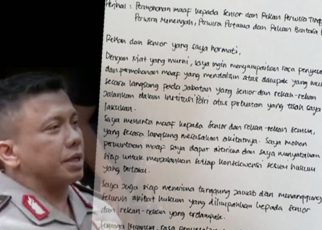 Perihal : Permohonan maaf kepada Senior dan Rekan Perwira Tinggi
Perwira Menengah, Perwira Pertama dan Rekan Bintara
Rekan dan Senior yang saya hormati,
Dengan niat yang murni, saya ingin menyampaikan rasa penyesalan
dan permohonan maaf yang mendalam atas dampak yang
secara langsung pada jabatan yang senior dan rekan-rekan
jalankan dalam institusi Polri atas perbuatan yang telah saya
lakukan.
Saya meminta maaf kepada senior dan rekan-rekan semua
yang secara langsung merasakan akibatnya. Saya mohon
permohonan maaf saya dapat diterima dan saya menyatakan
siap untuk menjalankan setiap konsekuensi sesuai hukum
yang berlaku.
Saya juga siap menerima tanggung jawab dan menanggung
seluruh akibat hukum yang dilimpahkan kepada senior
dan rekan-rekan yang terdampak.